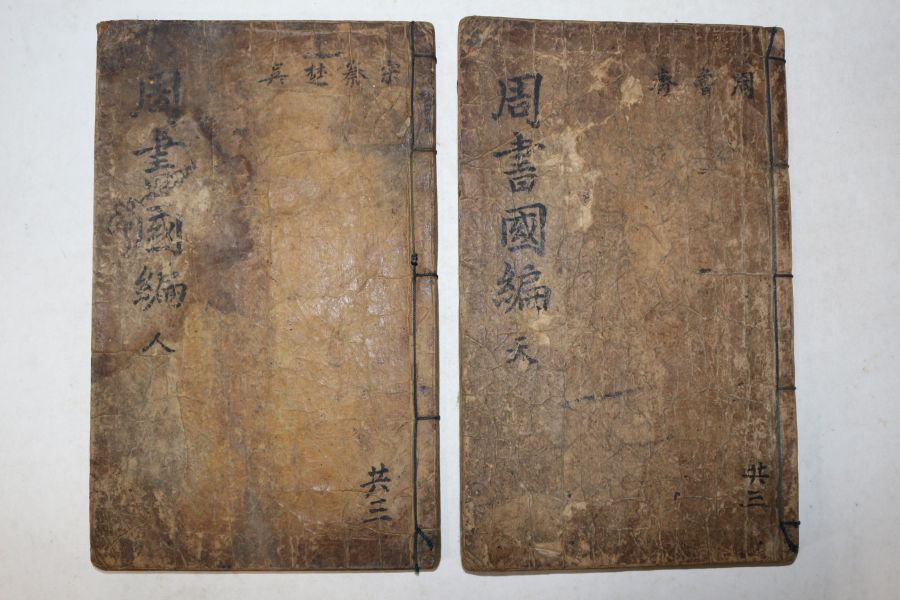 周魯齊
周書國編 天
共三
宋蔡楚吳
周書國編 人
共三